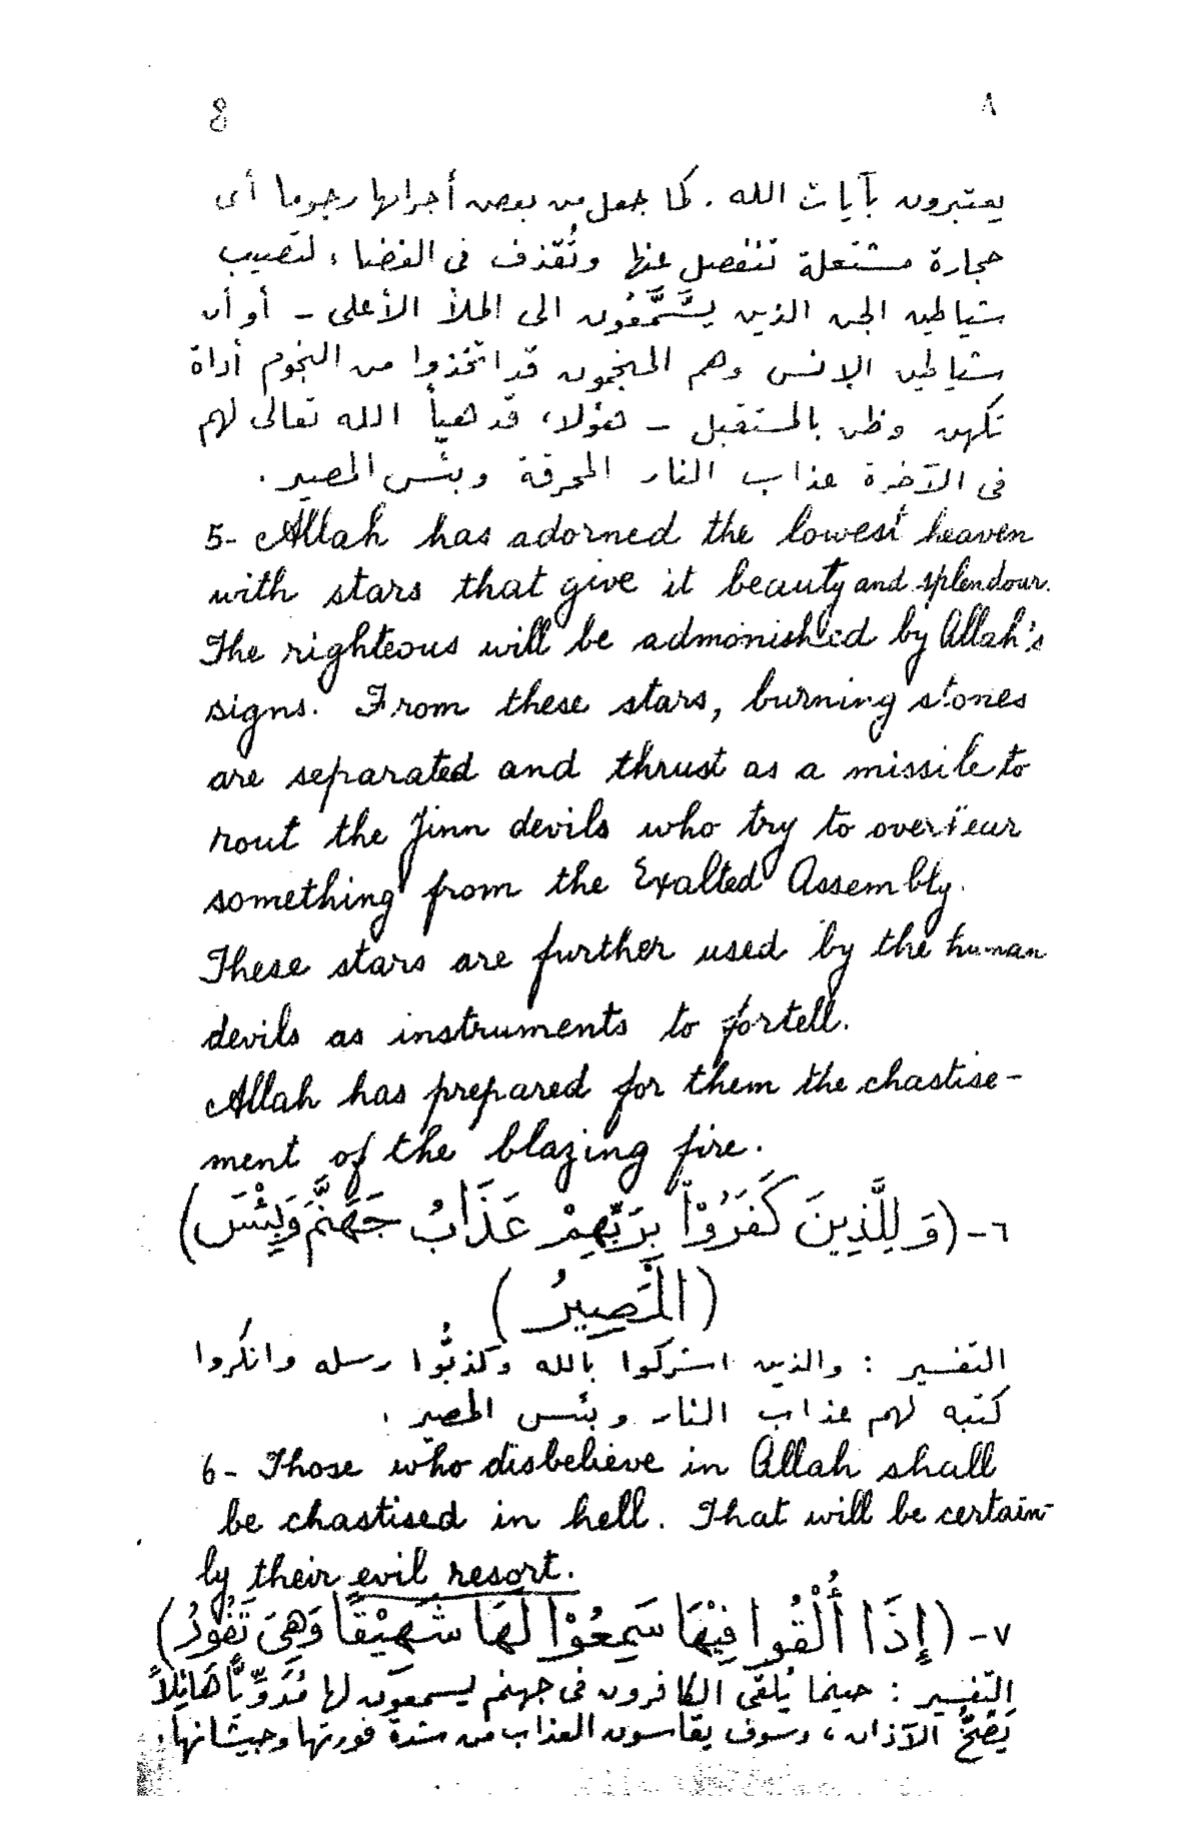 8 ٨
يعتبرون بآيات الله . كما جعل من بعض أجرامها رجوما أى
حجارة مشتعلة تنفصل عنها وتُقذف فى الفضاء لتصيب
شياطين الجن الذين يسَّمَّعُون الى الملأ الأعلى - أو أن
شياطين الإنس وهم المنجمون قد اتخذوا من النجوم أداة
تكهن وظن بالمستقبل - هؤلاء قد هيأ الله تعالى لهم
فى الآخرة عذاب النار المحرقة وبئس المصير .
5- Allah has adorned the lowest heaven
with stars that give it beauty and splendour.
The righteous will be admonished by Allah's
signs. From these stars, burning stones
are separated and thrust as a missile to
rout the Jinn devils who try to overhear
something from the Exalted Assembly.
These stars are further used by the human
devils as instruments to fortell.
Allah has prepared for them the chastise-
ment of the blazing fire.
٦- (وَلِلَّذِينَ كَفَرُوْا بِرَبِّهِمْ عَذَابُ جَهَنَّمَ وَبِئْسَ)
(الْمَصِيرُ)
التفسير : والذين اشركوا بالله وكذبُّوا رسله وانكروا
كتبه لهم عذاب النار وبئس المصير .
6- Those who disbelieve in Allah shall
be chastised in hell. That will be certain-
ly their evil resort.
٧- (إِذَا أُلْقُوا فِيْهَا سَمِعُوْا لَهَا شَهِيْقًا وَهِىَ تَفُوْرُ)
التفسير : حينما يُلقى الكافرون فى جهنم يسمعون لها دَوِيًّا هَائِلاً
يَصُخُّ الآذان ، وسوف يقاسون العذاب من شدة فورتها وجيشانها .